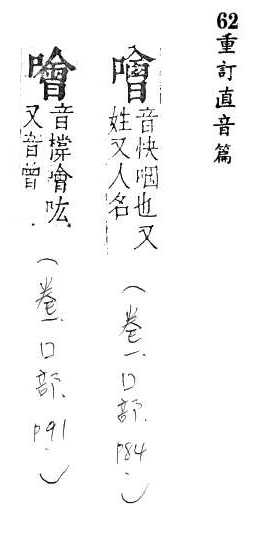 62重訂直音篇
噲
音快咽也又
姓又人名
(卷一.口部.p84.)
噌
音橕噌吰.
又音曾
(卷一.口部.p91.)